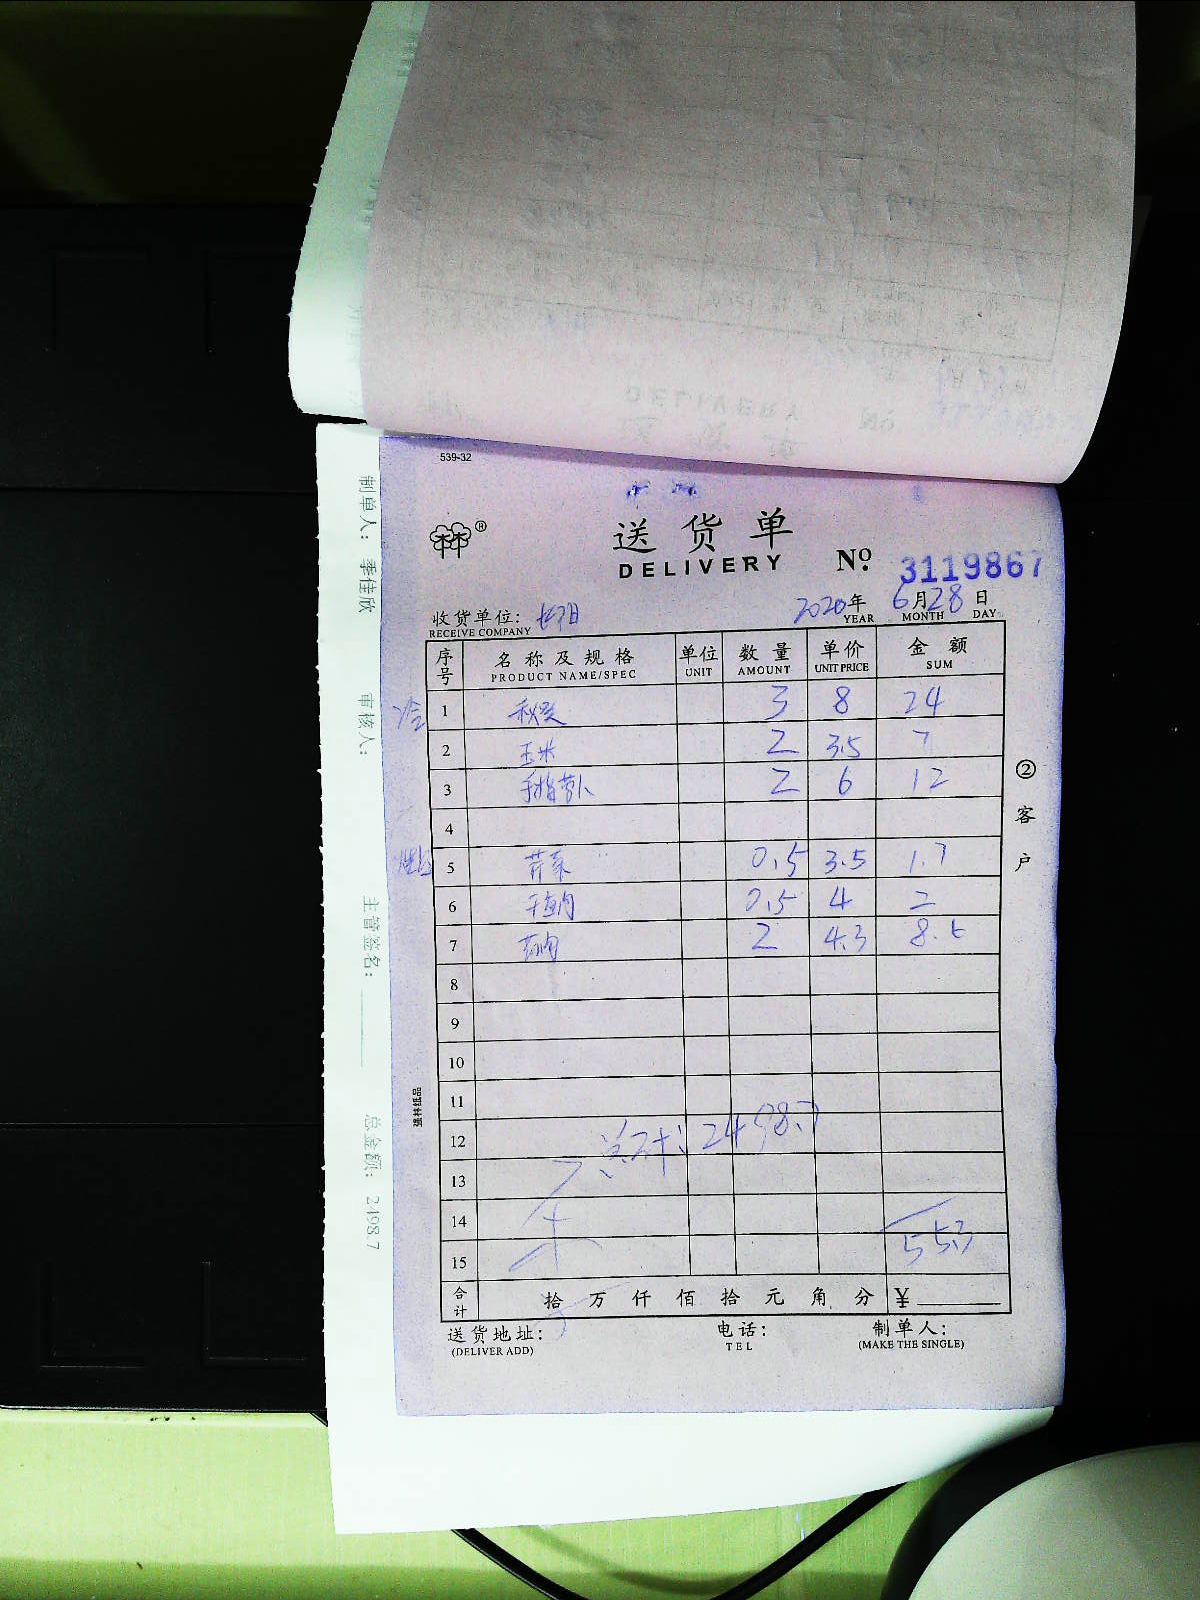 539-32
送货单
DELIVERY
№ 3119867
收货单位:
RECEIVE COMPANY
2020年 6月28日
YEAR MONTH DAY
序号 名称及规格 单位 数量 单价 金额
PRODUCT NAME/SPEC UNIT AMOUNT UNIT PRICE SUM
冷 1 秋葵 3 8 24
2 玉米 2 3.5 7
3 手指萝卜 2 6 12
4
5 芹菜 0.5 3.5 1.7
6 0.5 4 2
7 2 4.3 8.6
8
9
10
11
12 总计: 2498.7
13
14
15 55.3
合计 拾万仟佰拾元角分 ¥
送货地址: 电话: 制单人:
(DELIVER ADD) TEL (MAKE THE SINGLE)
②客户
强林纸品
制单人: 季佳欣 审核人: 主管签名: 总金额: 2498.7